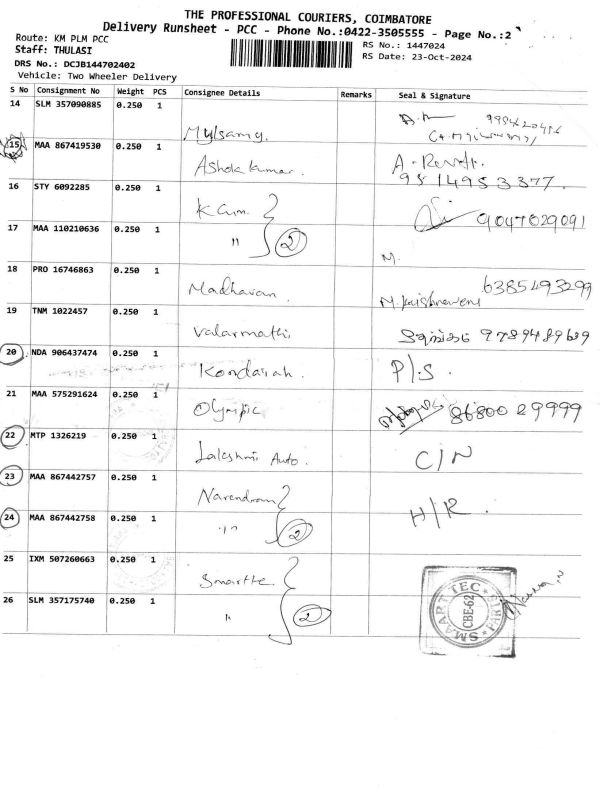 THE PROFESSIONAL COURIERS, COIMBATORE
Delivery Runsheet - PCC - Phone No.:0422-3505555 - Page No.:2
Route: KM PLM PCC
RS No.: 1447024
Staff: THULASI
RS Date: 23-Oct-2024
DRS No.: DCJB144702402
Vehicle: Two Wheeler Delivery
S No Consignment No Weight PCS Consignee Details Remarks Seal & Signature
14 SLM 357090885 0.250 1 Mylsamy.
15 MAA 867419530 0.250 1 Ashok kumar. 9514953377.
16 STY 6092285 0.250 1 9047029091
17 MAA 110210636 0.250 1 " 2 M.
18 PRO 16746863 0.250 1 Madhavan. M. Krishnaveni 6385493299
19 TNM 1022457 0.250 1 Valarmathi 9789489639
20 NDA 906437474 0.250 1 Kondaiah. P/.S.
21 MAA 575291624 0.250 1 Olympic 86800 29999
22 MTP 1326219 0.250 1 Lakshmi Auto. C/N
23 MAA 867442757 0.250 1 Narendran H/R.
24 MAA 867442758 0.250 1 " 2
25 IXM 507260663 0.250 1
26 SLM 357175740 0.250 1 " 2
SMAART TEC PARTS
CBE-62